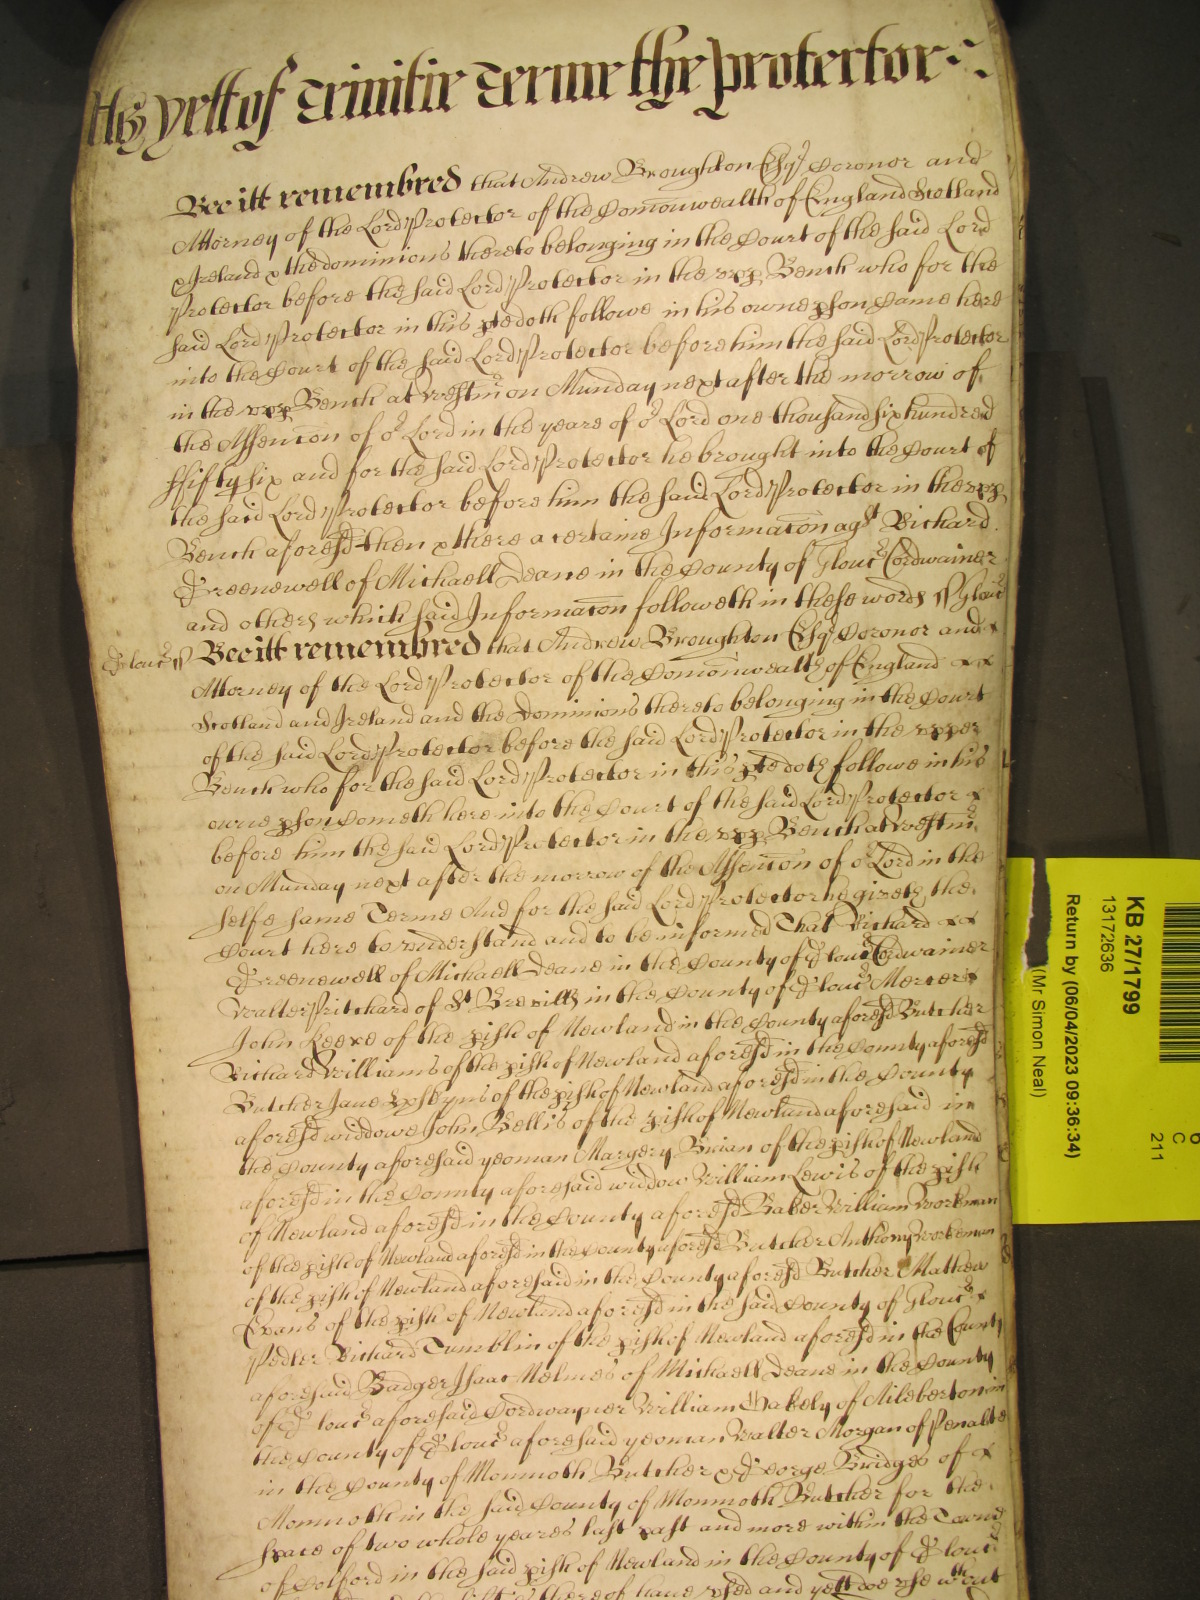 As yett of Trinitie Terme the Protector
Bee itt remembred that Andrew Broughton Esqr Coronor and
Attorney of the Lord Protector of the Comonwealth of England Scotland
& Ireland & the dominions thereto belonging in the Court of the said Lord
Protector before the said Lord Protector in the upp Bench who for the
said Lord Protector in this pte doth followe in his owne pson Came here
into the Court of the said Lord Protector before him the said Lord Protector
in the upp Bench at Westmr on Munday next after the morrow of
the Assencon of or Lord in the yeare of or Lord one thousand six hundred
ffifty six and for the said Lord Protector he brought into the Court of
the said Lord Protector before him the said Lord Protector in the upp
Bench aforesd then & there a certaine Informacon agst Richard
Greenewell of Michaell Deane in the County of Gloucr Cordwainer
and others which said Informacon followeth in these words ss Gloucr
Gloucr ss Bee itt remembred that Andrew Broughton Esqr Coronor and
Attorney of the Lord Protector of the Comonwealth of England
Scotland and Ireland and the Dominions thereto belonging in the Court
of the said Lord Protector before the said Lord Protector in the upper
Bench who for the said Lord Protector in this pte doth followe in his
owne pson Cometh here into the Court of the said Lord Protector
before him the said Lord Protector in the upp Bench at Westmr
on Munday next after the morrow of the Assencon of or Lord in the
selfe same Terme And for the said Lord Protector he giveth the
Court here to understand and to be informed That Richard
Greenewell of Michaell Deane in the County of Gloucr Cordwainer
Walter Pritchard of St Brevills in the County of Gloucr Mercer
John Keere of the pish of Newland in the County aforesd Butcher
Richard Williams of the pish of Newland aforesd in the County aforesd
Butcher Jane of the pish of Newland aforesd in the County
aforesd widdowe John Bellis of the pish of Newland aforesaid in
the County aforesaid yeoman Margery Brian of the pish of Newland
aforesd in the County aforesaid widdow William Lewis of the pish
of Newland aforesd in the County aforesd Baker William Workman
of the pish of Newland aforesd in the County aforesd Butcher Anthony Workeman
of the pish of Newland aforesaid in the County aforesd Butcher Mathew
Evans of the pish of Newland aforesd in the said County of Gloucr
Pedler Richard Tumblin of the pish of Newland aforesd in the County
aforesaid Badger Isaac Melmes of Michaell Deane in the County
of Gloucr aforesaid Cordwayner William of Aileberton in
the County of Gloucr aforesaid yeoman Walter Morgan of Penalte
in the County of Monmoth Butcher & George Bridges of
Monmoth in the said County of Monmoth Butcher for the
space of two whole yeares last past and more within the Towne
of Colford in the said pish of Newland in the County of Gloucr
thereof have used and yett doe use wthout
KB 27/1799
13172636
Return by (06/04/2023 09:36:34)
(Mr Simon Neal)
6
C
211